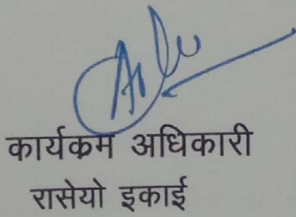 कार्यक्रम अधिकारी
रासेयो इकाई